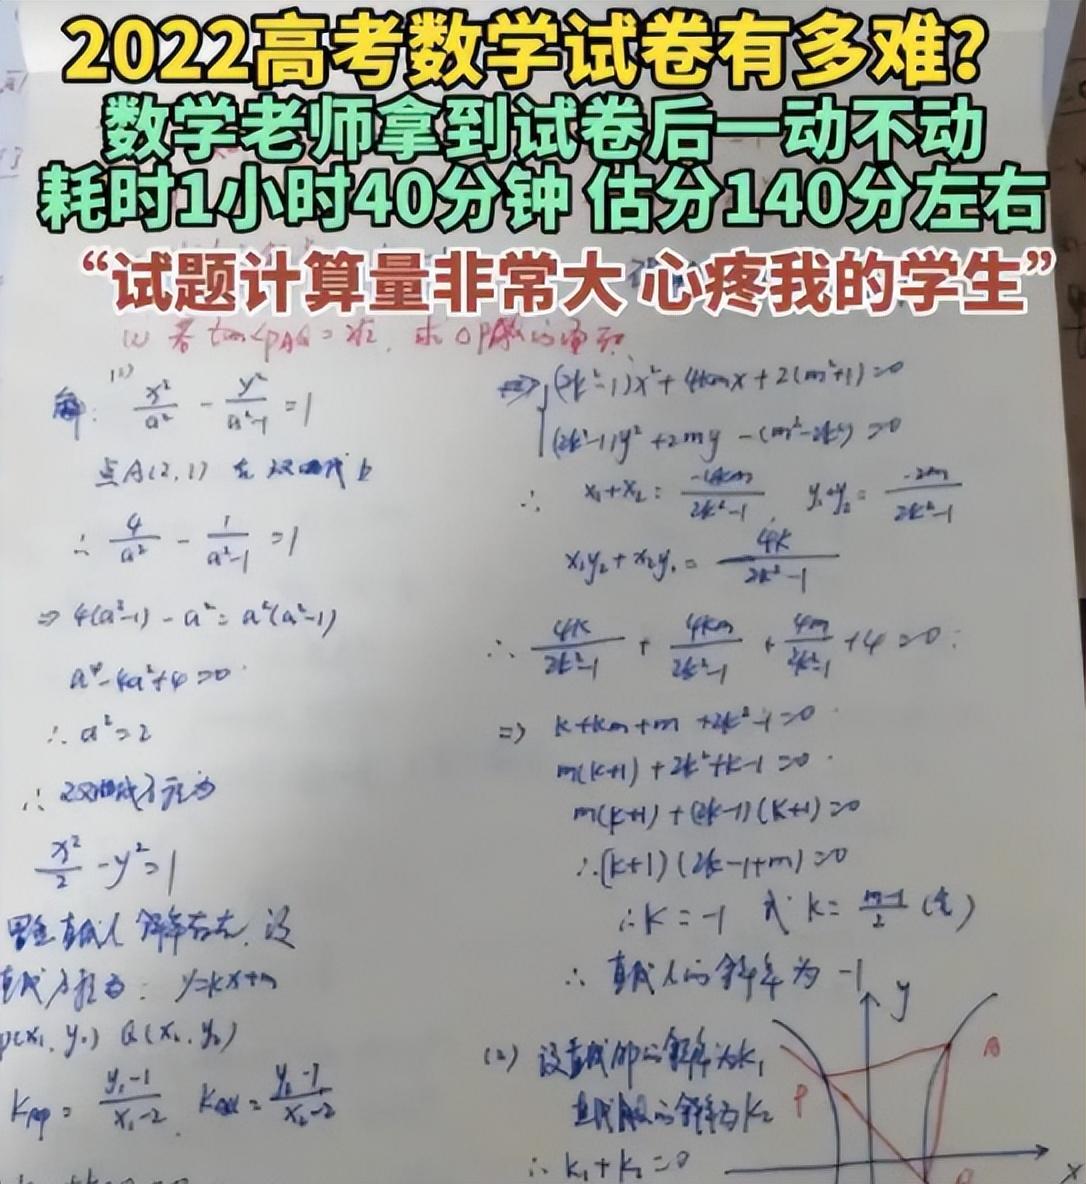 2022高考数学试卷有多难?
数学老师拿到试卷后一动不动
耗时1小时40分钟 估分140分左右
“试题计算量非常大 心疼我的学生”
(2) 若 tan∠PAQ = 2√2, 求△PAQ的面积
解: (1) x²/a² - y²/(a²-1) = 1
点A(2,1) 在双曲线上
∴ 4/a² - 1/(a²-1) = 1
⇒ 4(a²-1) - a² = a²(a²-1)
a⁴-4a²+4=0
∴ a²=2
∴ 双曲线方程为
x²/2 - y² = 1
直线l斜率存在, 设
直线方程为: y=kx+m
P(x₁, y₁) Q(x₂, y₂)
K_AP = (y₁-1)/(x₁-2), K_AQ = (y₂-1)/(x₂-2)
⇒ (2k²-1)x² + 4kmx + 2(m²+1) = 0
(2k²-1)y² + 2my - (m²-2k²) = 0
∴ x₁+x₂ = -4km/(2k²-1), y₁+y₂ = -2m/(2k²-1)
x₁y₂ + x₂y₁ = 4k/(2k²-1)
∴ 4k/(2k²-1) + 4km/(2k²-1) + 4m/(2k²-1) + 4 = 0
⇒ k+km+m+2k²-1=0
m(k+1) + 2k²+k-1=0
m(k+1) + (2k-1)(k+1)=0
∴ (k+1)(2k-1+m)=0
∴ k = -1 或 k = (m-1)/2 (舍)
∴ 直线l的斜率为 -1
(2) 设直线AP的斜率为k₁
直线AQ的斜率为k₂
∴ k₁+k₂=0
y
A
P
Q
x